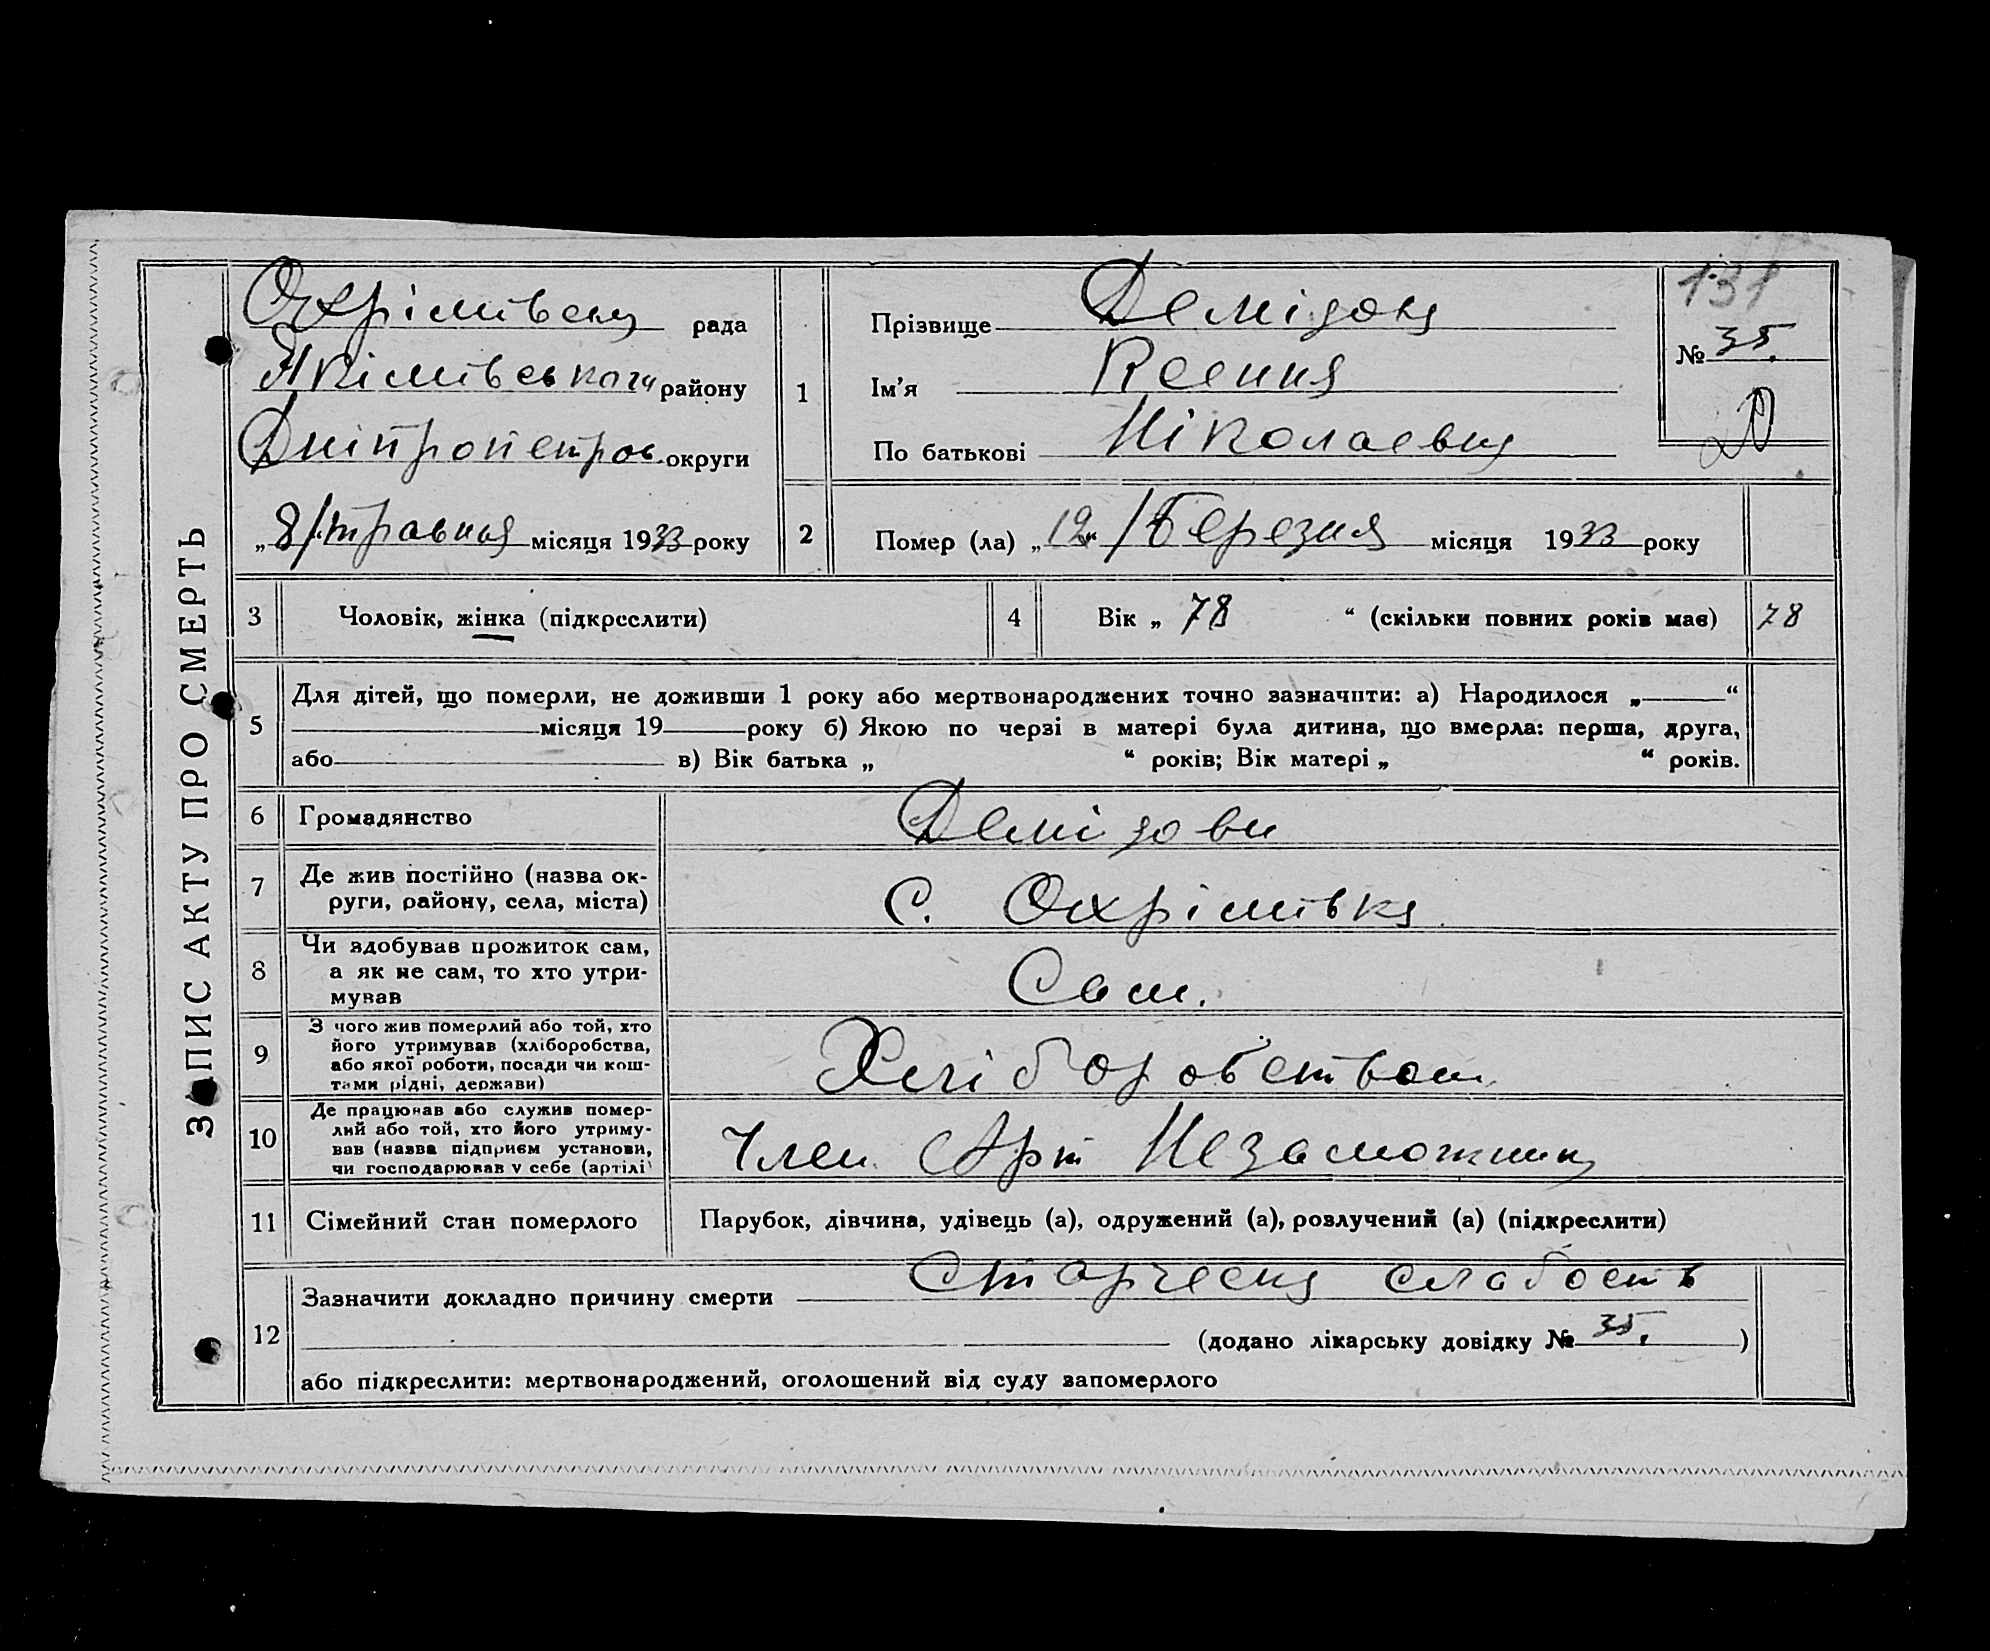 ЗАПИС АКТУ ПРО СМЕРТЬ
Охрімівська рада
Якімівського району
Дніпропетров. округи
„8/травня місяця 1933 року
1
Прізвище Демідова
Ім'я Ксения
По батькові Ніколаевна
131
№ 35.
2 Помер (ла) „12“ /Березня місяця 1933 року
3 Чоловік, жінка (підкреслити)
4 Вік „ 78 “ (скільки повних років має) 78
5 Для дітей, що померли, не доживши 1 року або мертвонароджених точно зазначити: а) Народилося „ “
місяця 19 року б) Якою по черзі в матері була дитина, що вмерла: перша, друга,
або в) Вік батька „ “ років; Вік матері „ “ років.
6 Громадянство
7 Де жив постійно (назва ок-
руги, району, села, міста) С. Охрімівка
8 Чи здобував прожиток сам,
а як не сам, то хто утри-
мував Сам.
9 З чого жив померлий або той, хто
його утримував (хліборобства,
або якої роботи, посади чи кош-
тами рідні, держави) Хліборобством
10 Де працював або служив помер-
лий або той, хто його утриму-
вав (назва підприєм установи,
чи господарював у себе (артілі) Член Арт Незаможник
11 Сімейний стан померлого Парубок, дівчина, удівець (а), одружений (а), розлучений (а) (підкреслити)
12 Зазначити докладно причину смерти Старческа слабость
(додано лікарську довідку № 35. )
або підкреслити: мертвонароджений, оголошений від суду запомерлого